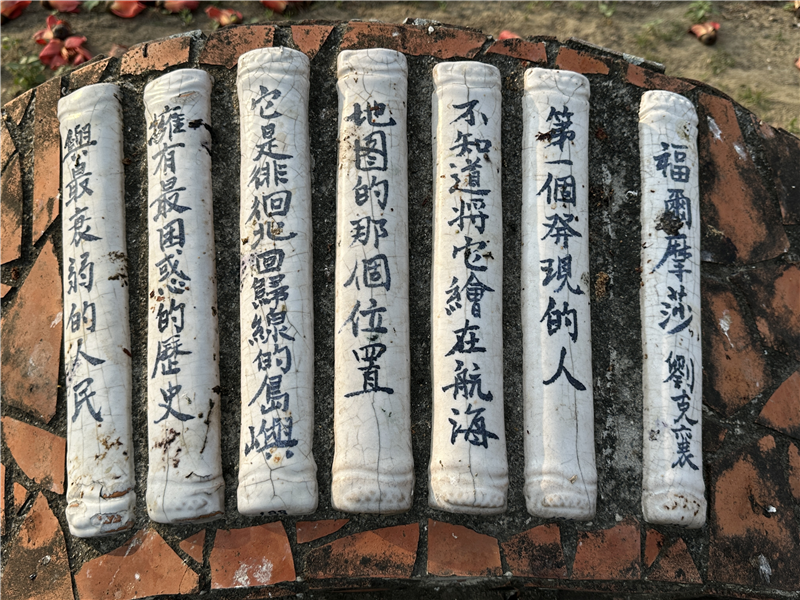 福爾摩莎 劉克襄
第一個発現的人
不知道将它繪在航海
地图的那個位置
它是徘徊北回歸線的島嶼
擁有最困惑的歷史
與最衰弱的人民